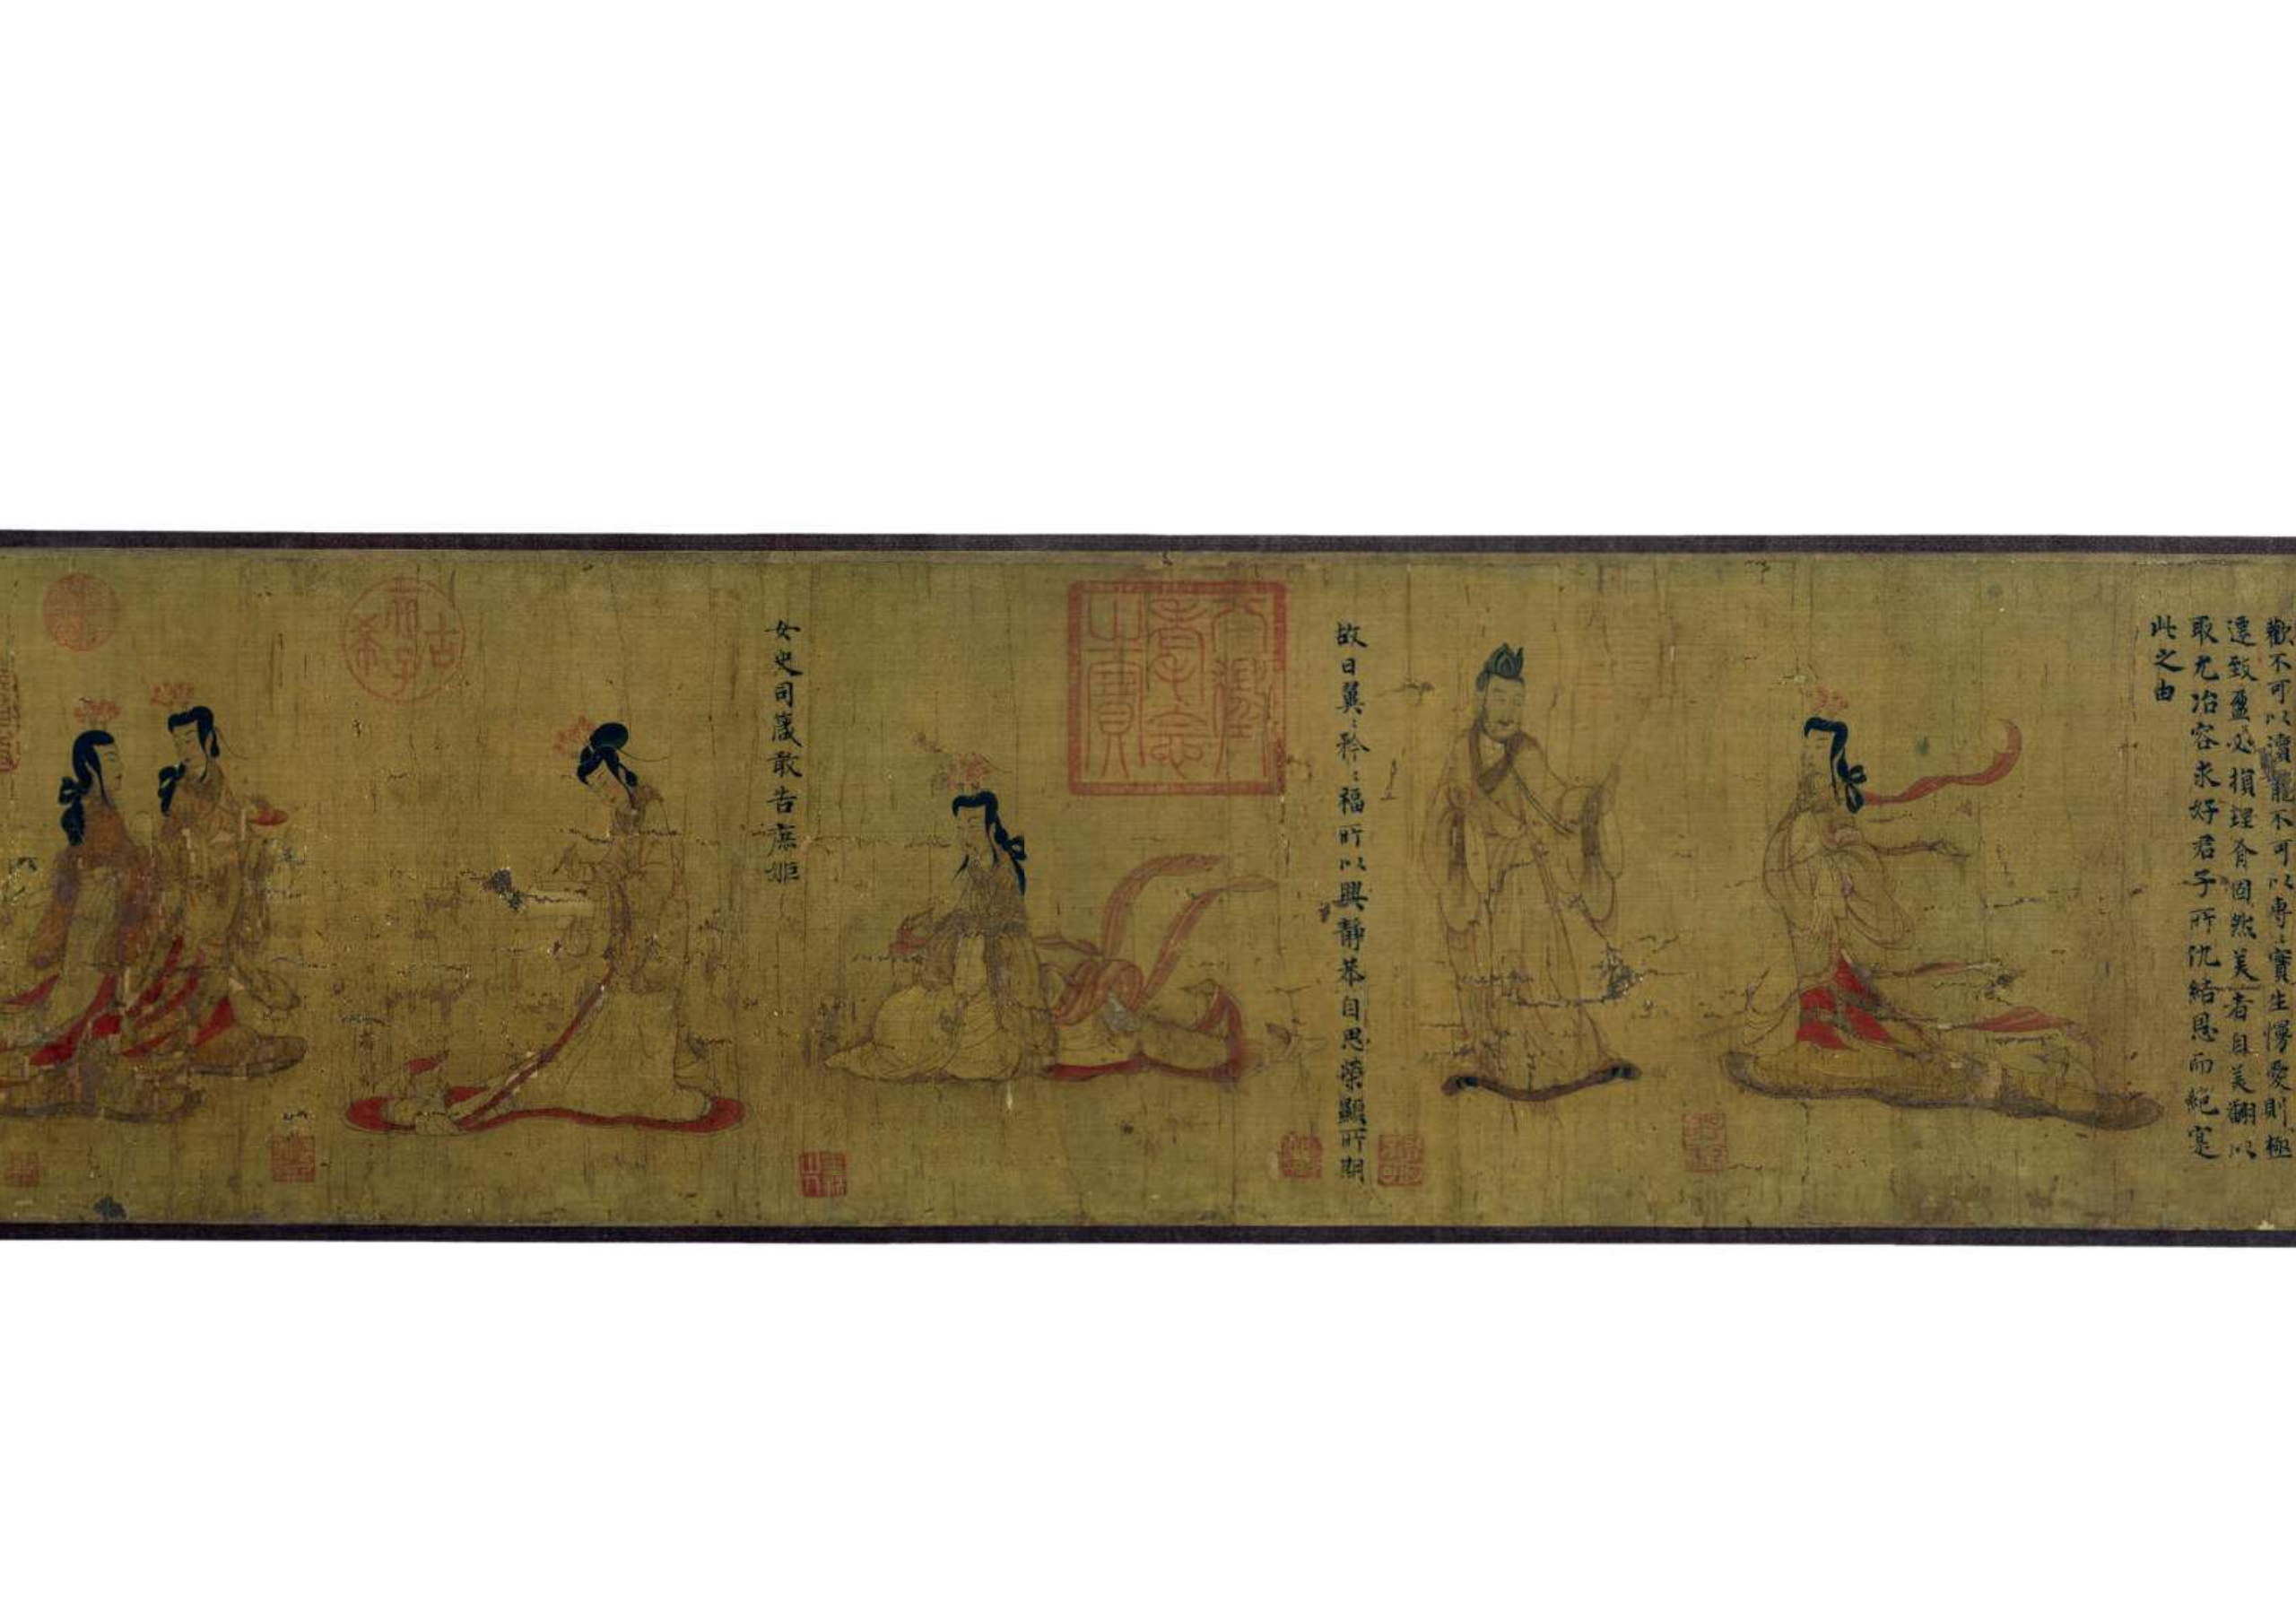 歡不可以瀆寵不可以專〻實生慢愛則極
遷致盈必損理有固然美者自美翩以
取尤冶容求好君子所仇結恩而絕寔
此之由
故曰翼〻矜〻福所以興靜恭自思榮顯所期
八徵耄念之寶
女史司箴敢告庶姬
古希天子